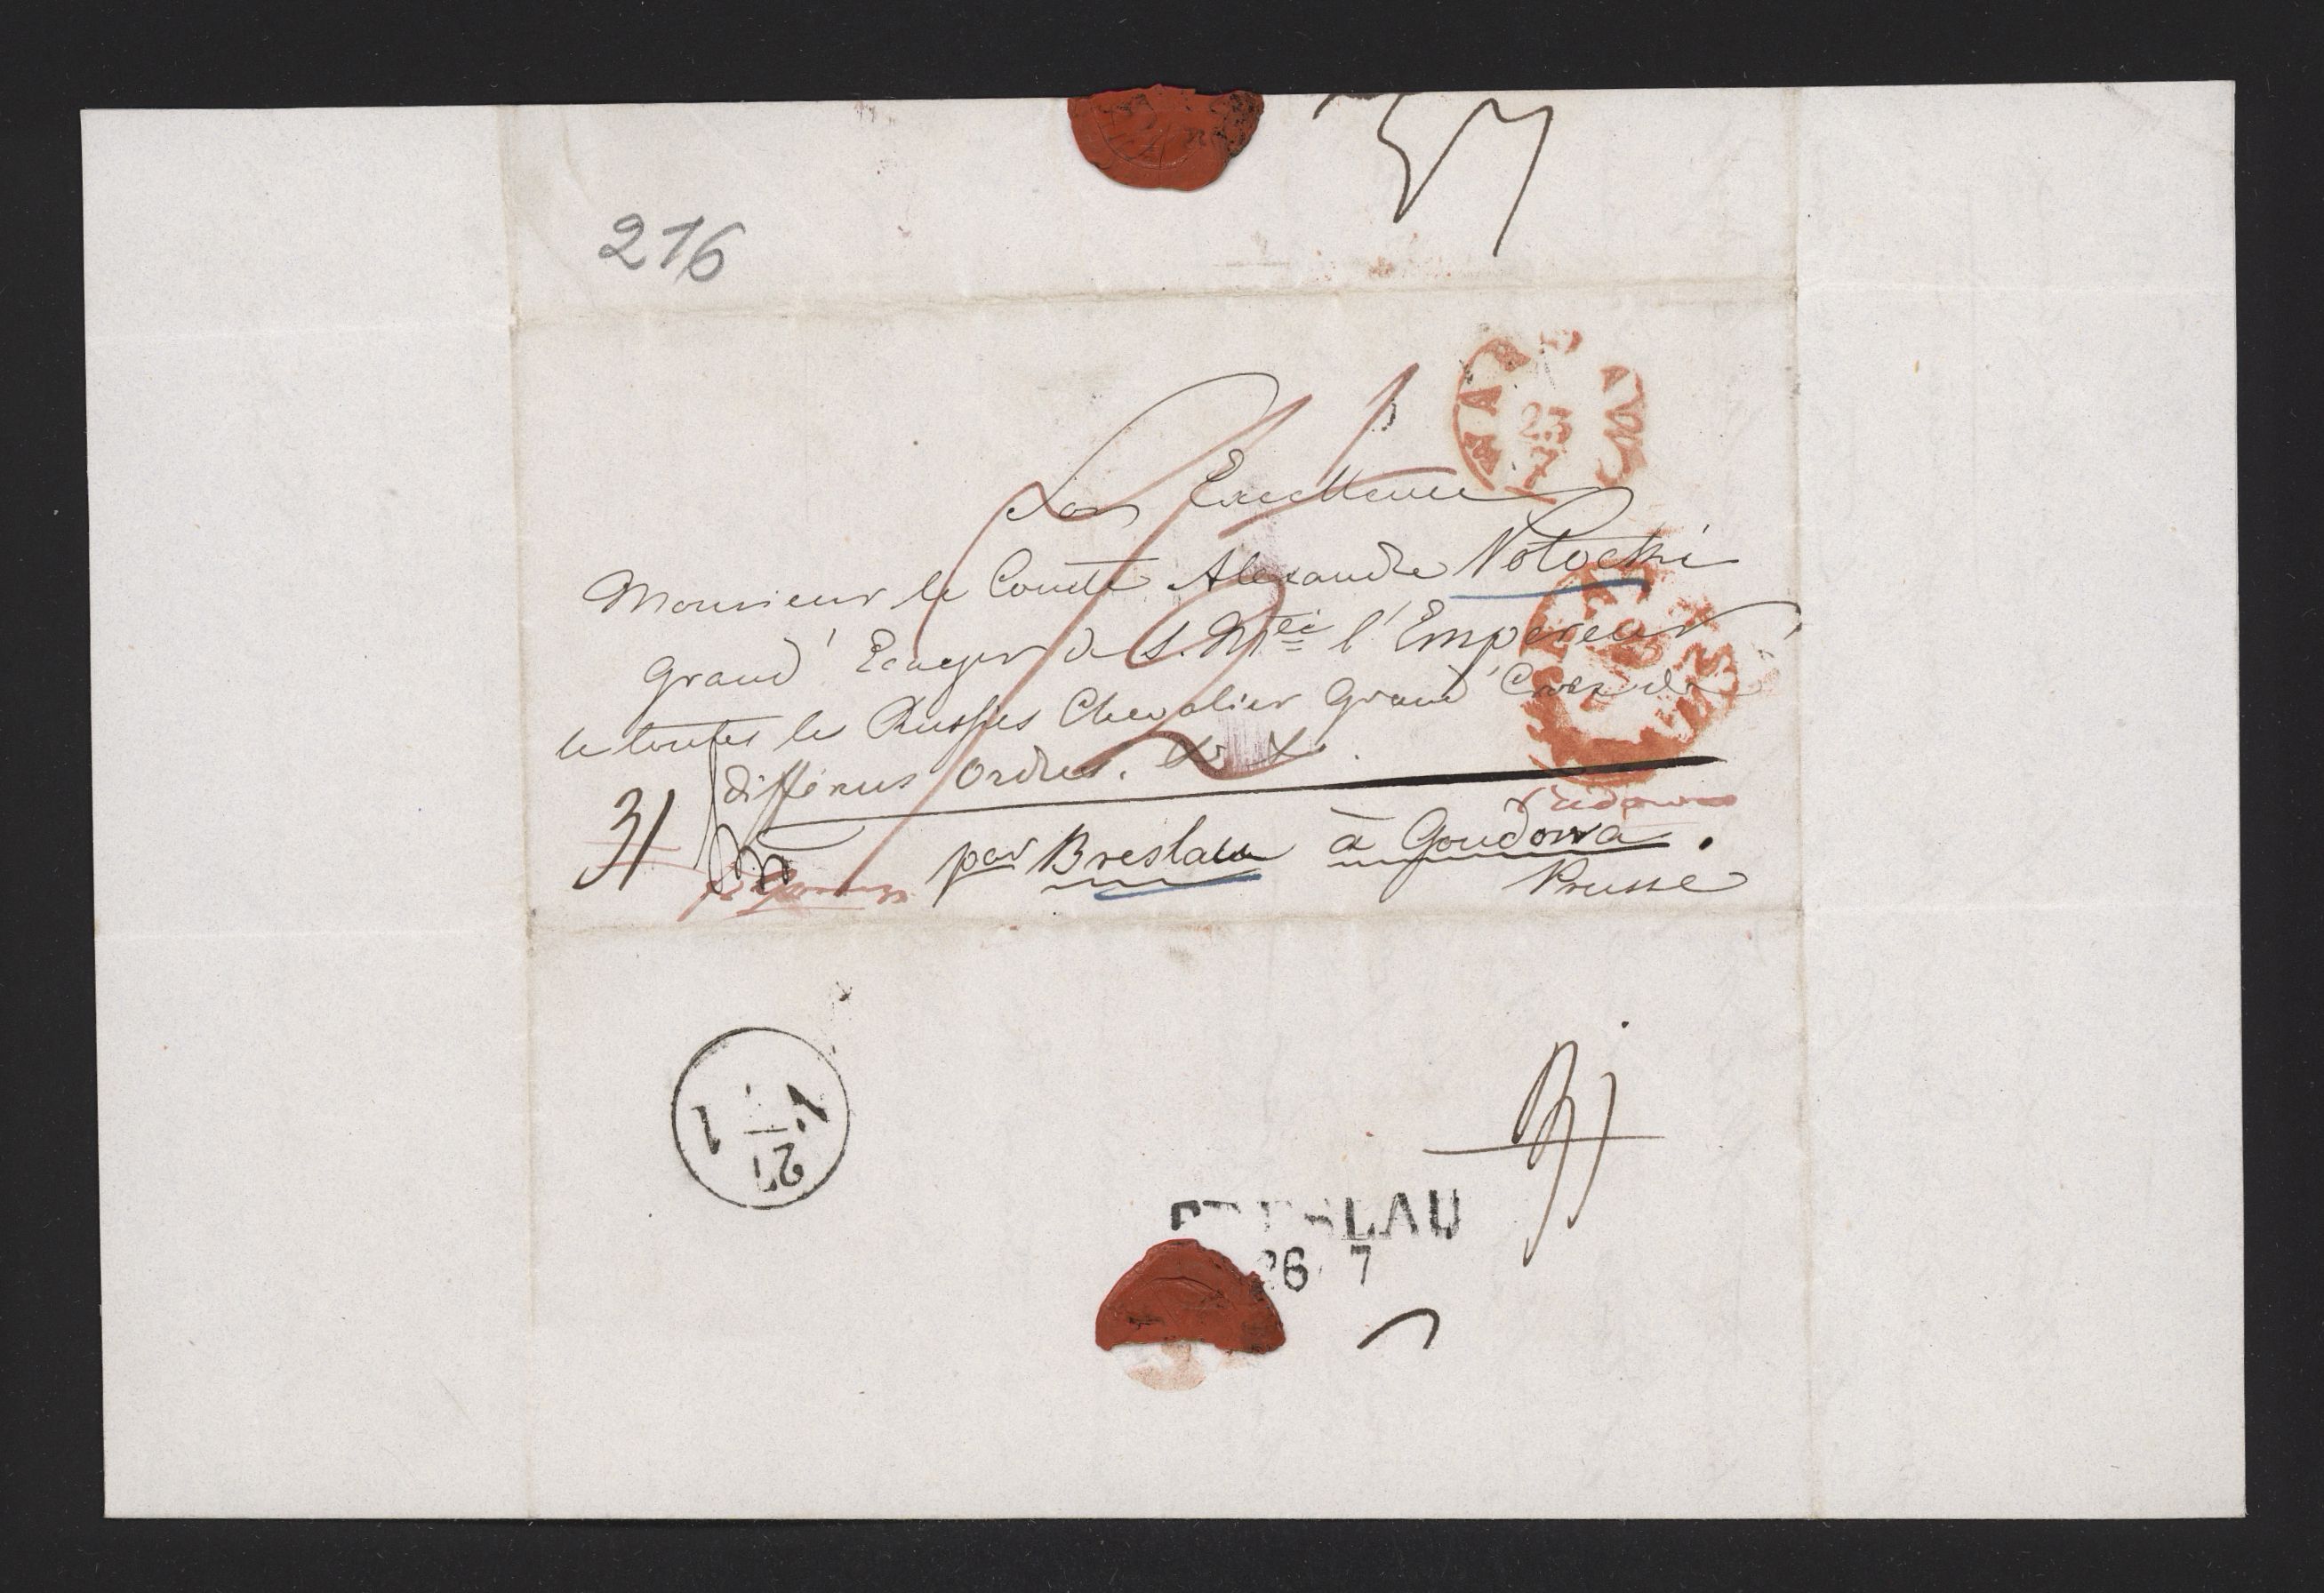 216
Son Excellence
Monsieur le Comte Alexandre Potocki
Grand Ecuyer de S. Mtéi l'Empereur
de toutes le Russies Chevalier Grand Croix de
differens Ordres. & &.
31
par Breslau à Goudowa.
Prusse
23
7
27
1
BRESLAU
26 7